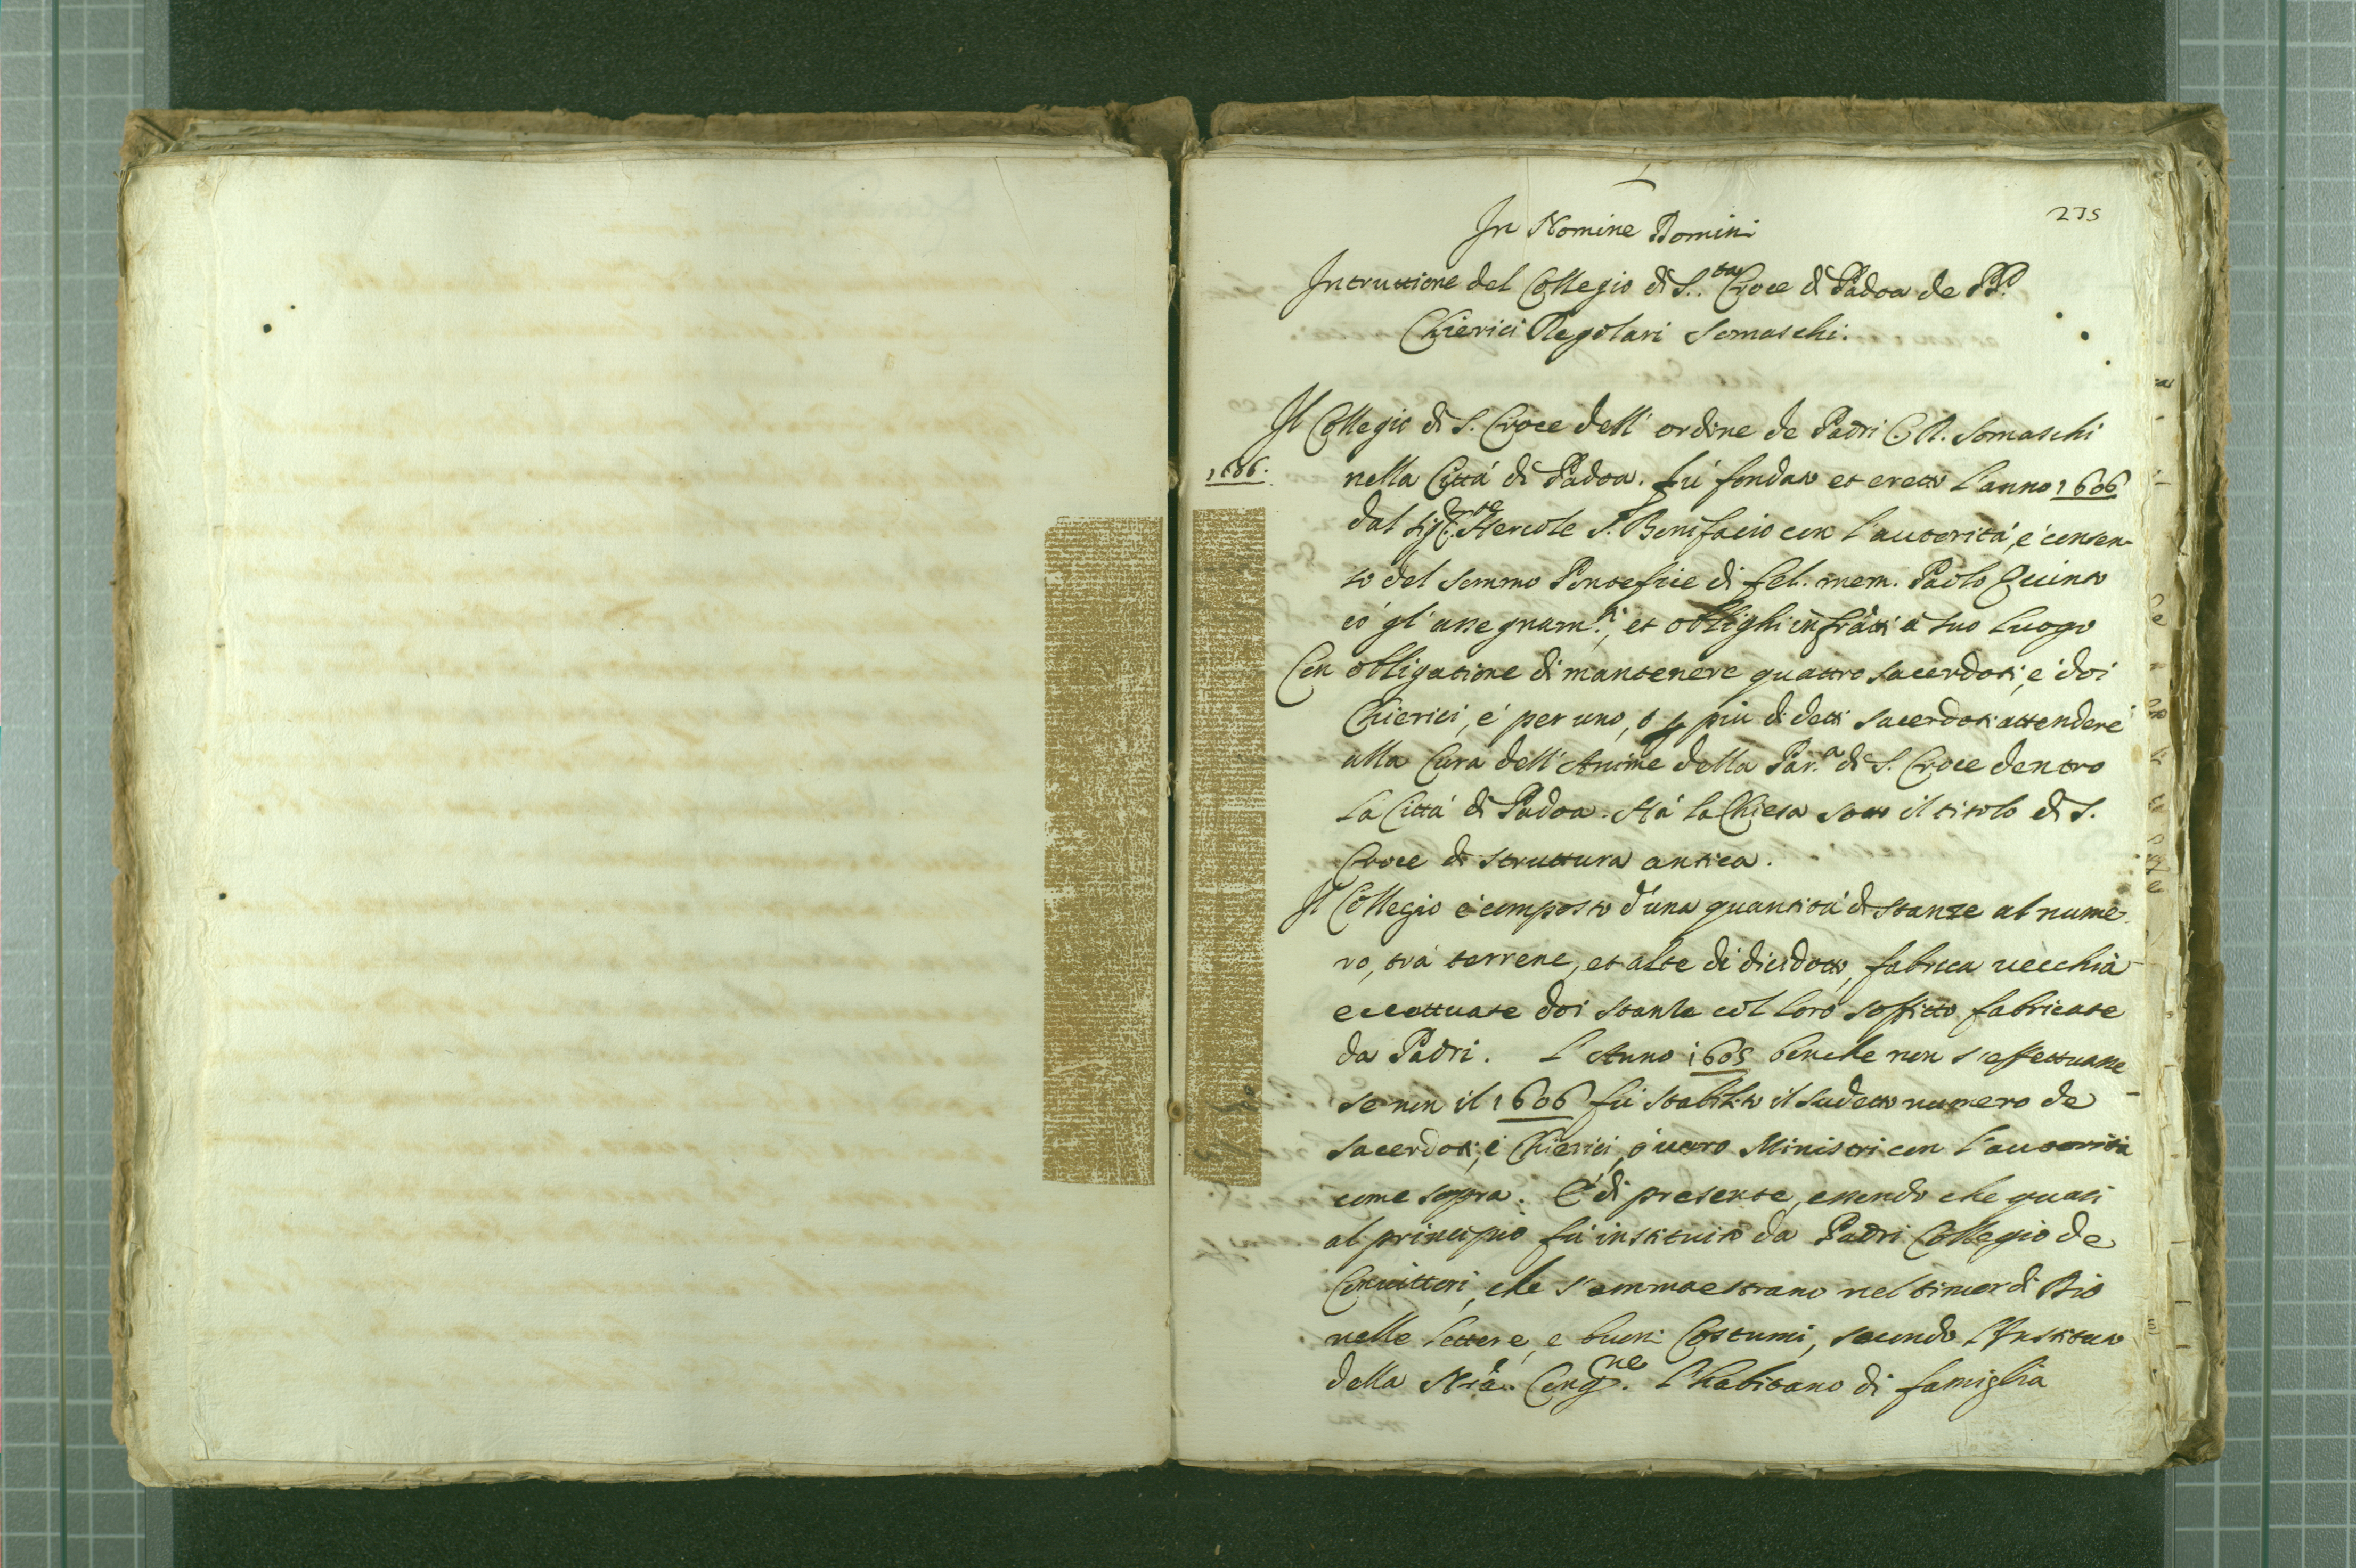 235
In Nomine Domini
Intruttione del Collegio di S.ta Croce di Padoa de PP.
Chierici Regolari Somaschi.
Il Collegio di S. Croce dell' ordine de Padri C. R. Somaschi
1606.
nella Città di Padoa. fù fondato et eretto l'anno 1606
dal Sig.r Hercole S. Bonifacio con l'autorità, è consen-
to del sommo Pontefice di fel. mem. Paolo Quinto
cò gl' assegnam.ti, et oblighi infratti à suo luogo
Con obligatione di mantenere quattro sacerdoti, è doi
Chierici, è per uno, ò più di detti sacerdoti attendere
alla Cura dell' Anime della Par.a di S. Croce dentro
la Città di Padoa. Hà la Chiesa sotto il titolo di S.
Croce di struttura antica.
Il Collegio è composto d'una quantità di stanze al nume-
ro, trà terrene, et alte di dicidotto, fabrica vecchia
eccettuate doi stanze col loro soffitto fabricate
da Padri. L'Anno 1605 benche non s'effettuasse
se non il 1606 fù stabilito il sudetto numero de
sacerdoti, è Chierici, ò vero Ministri con l'autorità
come sopra. È di presente, essendo che quasi
al principio fù instituito da Padri Collegio de
Convittori, che s'ammaestrano nel timor di Dio
nelle lettere, e buoni Costumi, secondo l'Instituto
della Nra. Cong.ne. L'habitano di famiglia